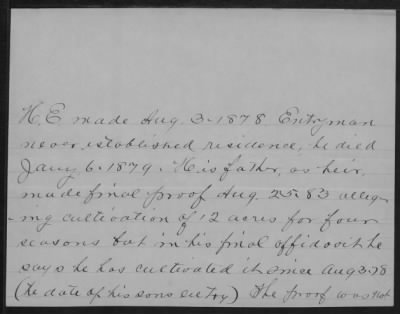 H. E. made Aug. 3-1878 Entryman
never established residence, he died
Jany 6-1879. His father, as heir,
made final proof Aug. 25-83 alleg-
ing cultivation of 12 acres for four
seasons but in his final affidavit he
says he has cultivated it since Aug 3-78
(the date of his sons entry) The proof was not